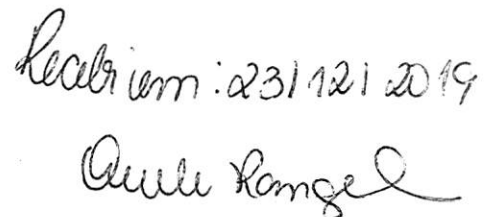 Recebi em: 23/12/2019
Rangel